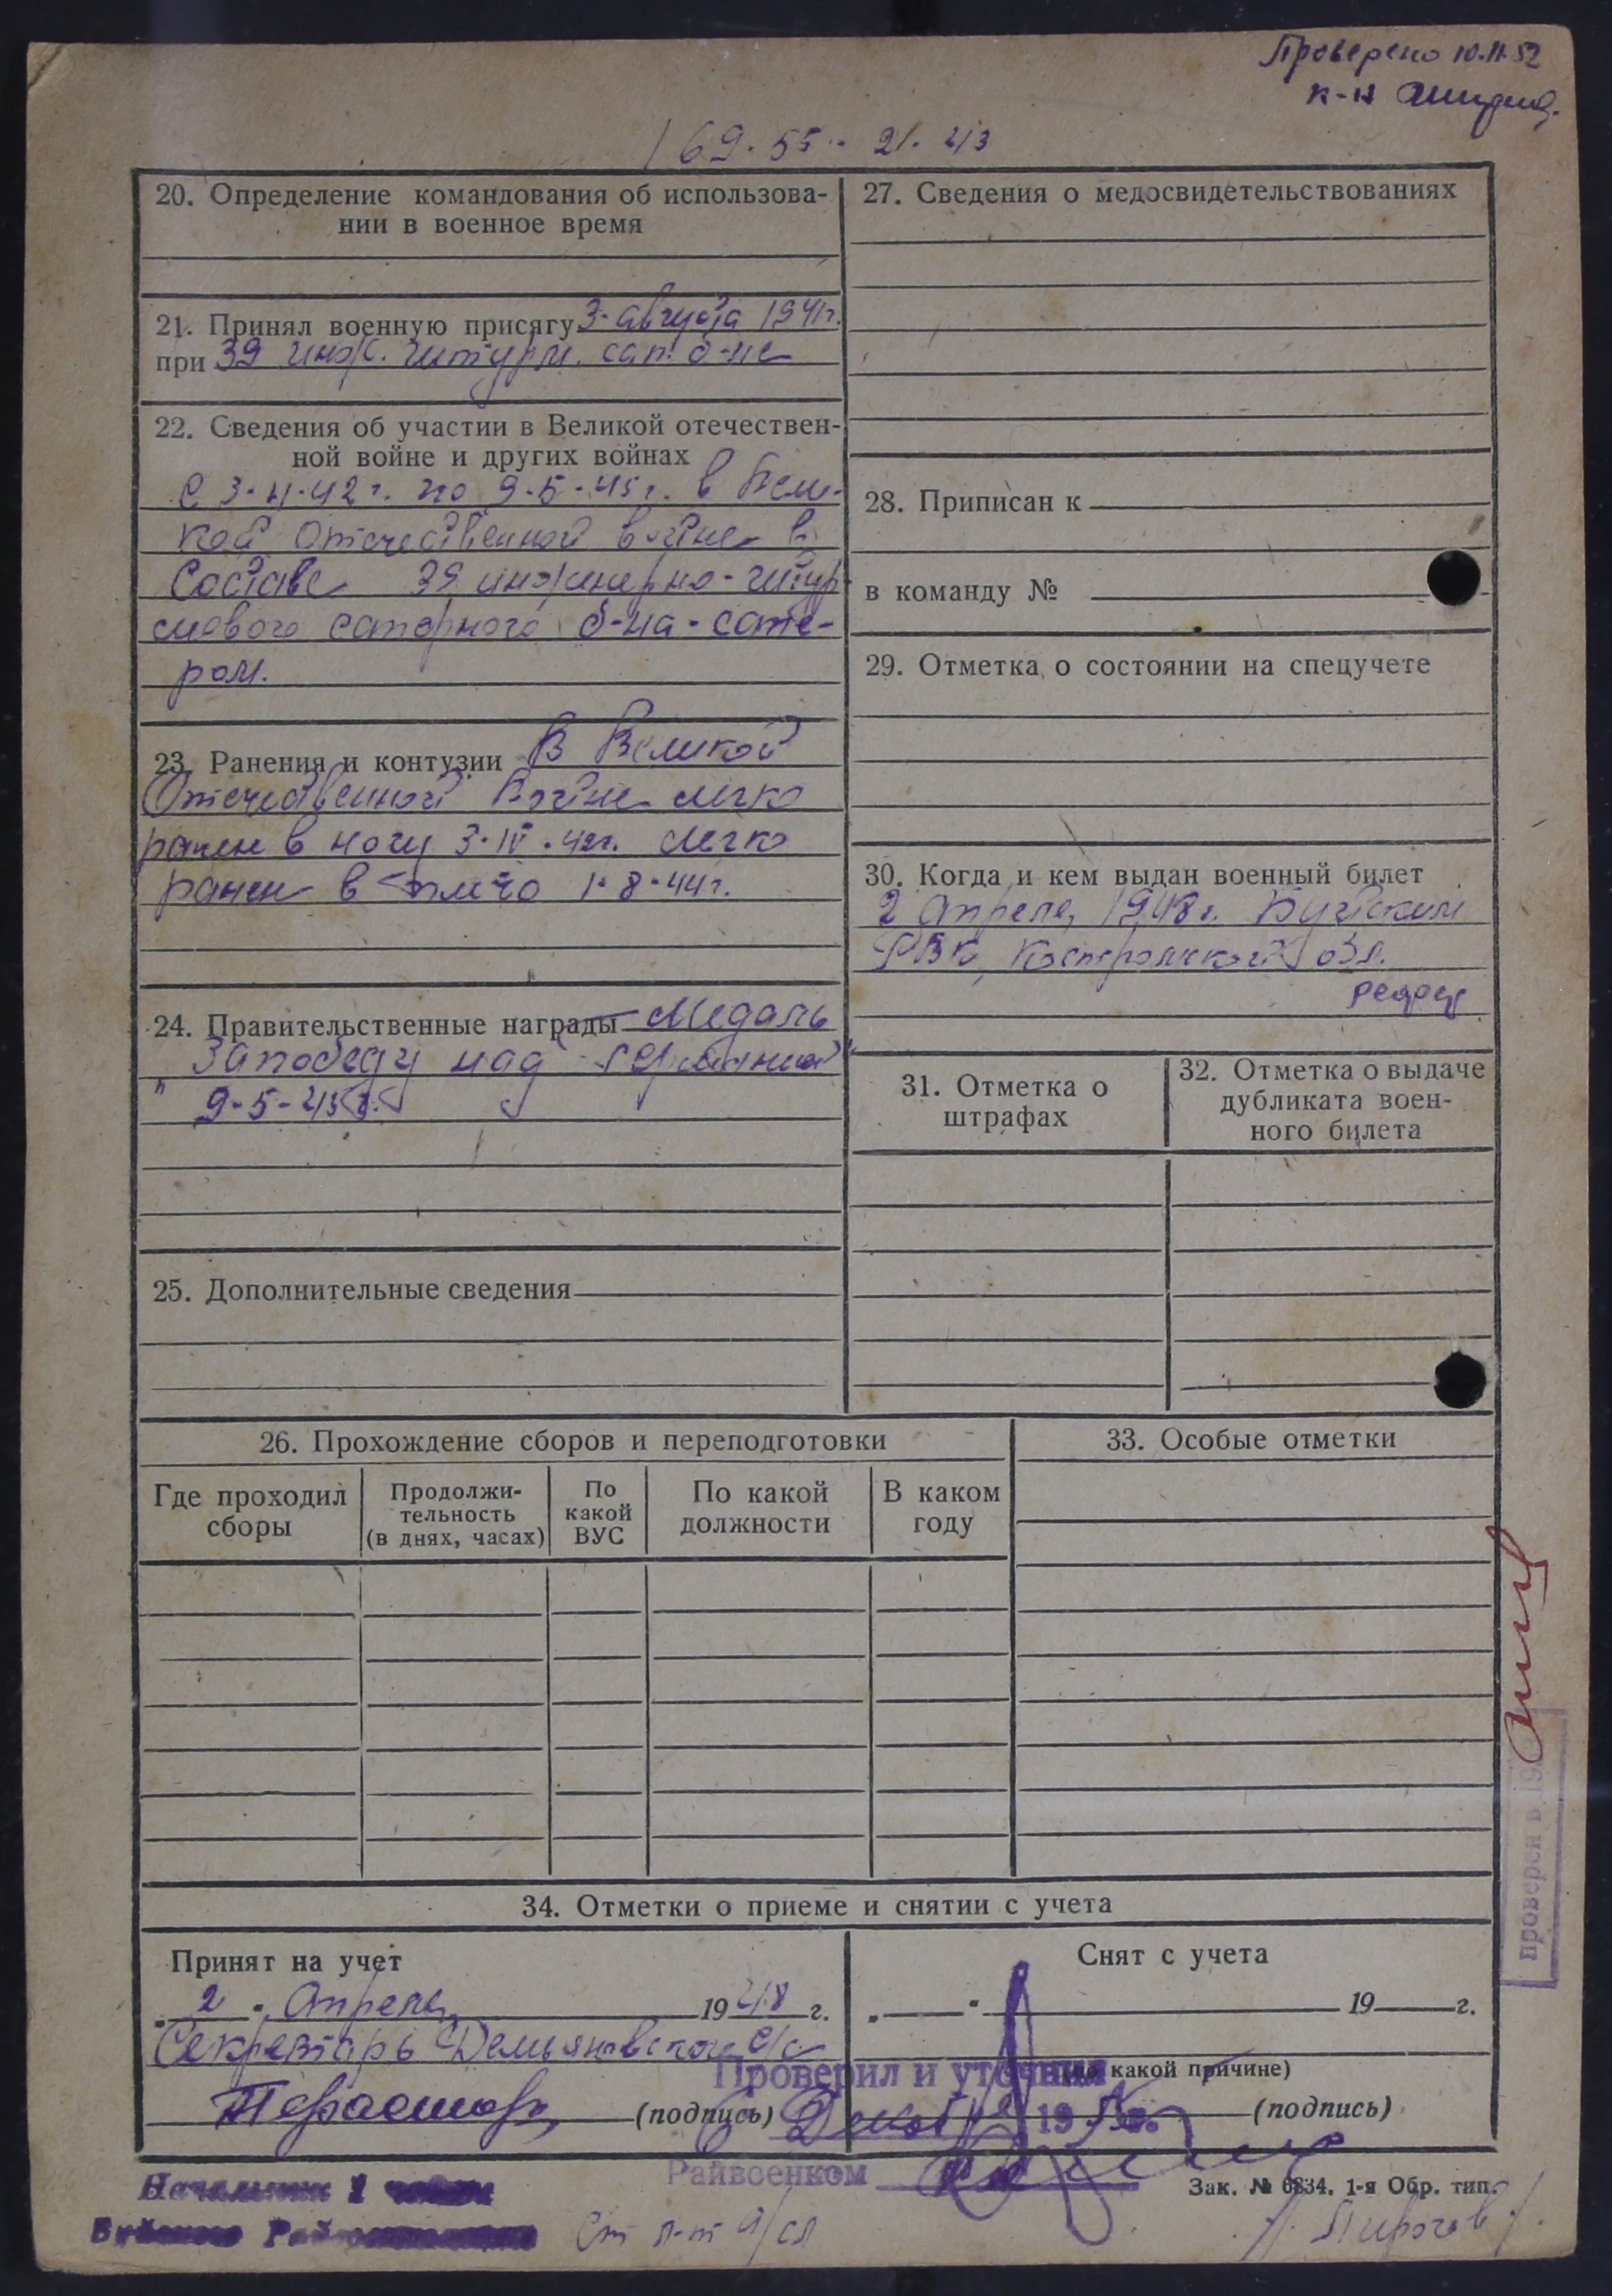 Проверено 10.11.52
к-н
169.55.. 21.43
20. Определение командования об использова-
нии в военное время
21. Принял военную присягу 3. августа 1941г.
при 39 инж. штурм. сап. б-не
22. Сведения об участии в Великой отечествен-
ной войне и других войнах
С 3.4.42г. по 9.5.45г. в Вели-
кой Отечественной войне в
составе 39 инженерно-штур
мового саперного б-на - сапе-
ром.
23. Ранения и контузии В Великой
Отечественной Войне легко
ранен в ногу 3.IV.42г. легко
ранен в плечо 1.8.44г.
24. Правительственные награды Медаль
"За победу над Германией"
9-5-45г.
25. Дополнительные сведения
27. Сведения о медосвидетельствованиях
28. Приписан к
в команду №
29. Отметка о состоянии на спецучете
30. Когда и кем выдан военный билет
2 Апреля, 1948г. Буйским
РВК, Костромской обл.
31. Отметка о
штрафах
32. Отметка о выдаче
дубликата воен-
ного билета
26. Прохождение сборов и переподготовки
Где проходил
сборы
Продолжи-
тельность
(в днях, часах)
По
какой
ВУС
По какой
должности
В каком
году
33. Особые отметки
проверен в 19
34. Отметки о приеме и снятии с учета
Принят на учет
„ 2 " Апреля 1948 г.
Секретарь Демьяновского с/с
(подпись)
Снят с учета
„ " 19 г.
(по какой причине)
(подпись)
Проверил и уточнил
19
Райвоенком
Зак. № 6834. 1-я Обр. тип.
Начальник 1 части
Буйского
Ст л-т а/сл
/Пирогов/